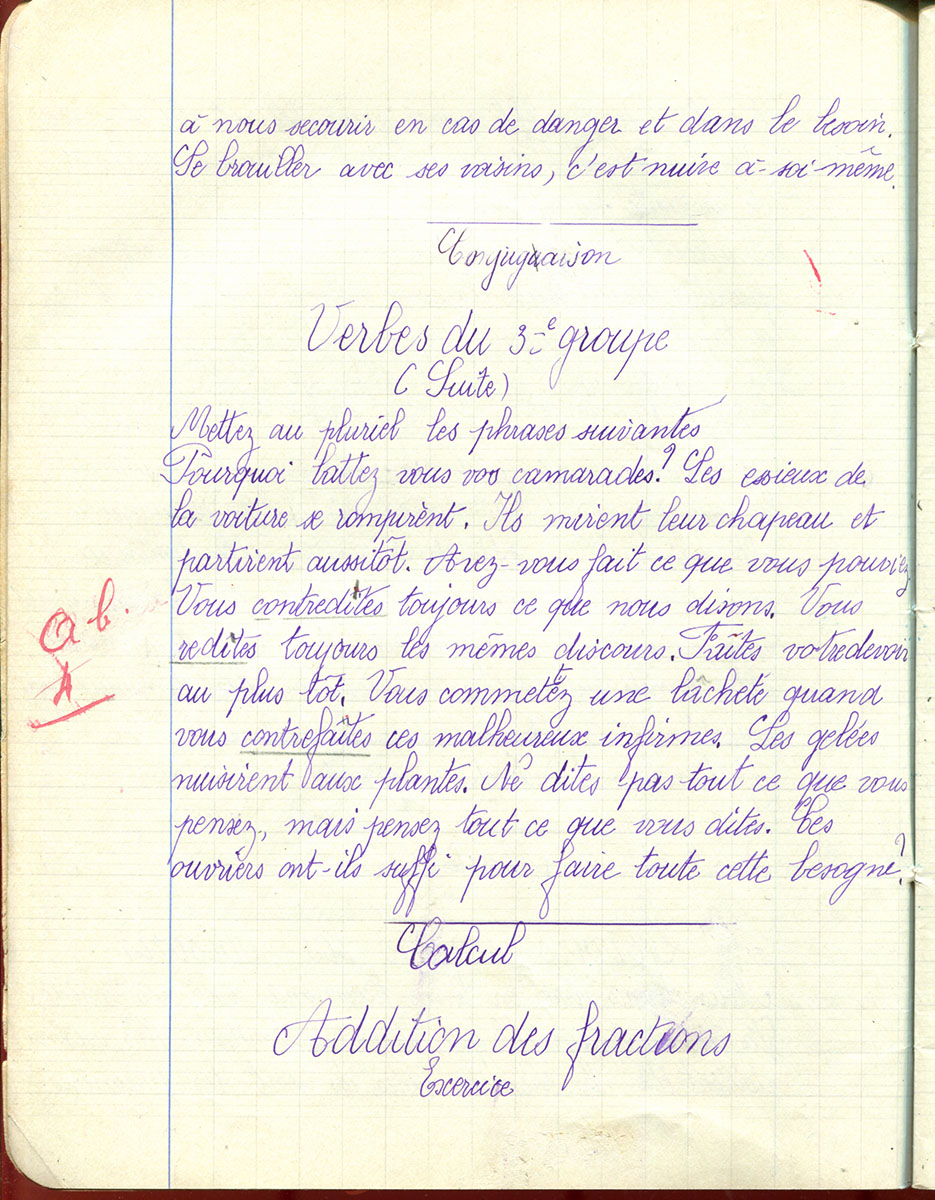 à nous secourir en cas de danger et dans le besoin.
Se brouiller avec ses voisins, c'est nuire à-soi-même.
Conjugaison
Verbes du 3e groupe
(Suite)
Mettez au pluriel les phrases suivantes
Pourquoi battez vous vos camarades? Les essieux de
la voiture se rompirent. Ils mirent leur chapeau et
partirent aussitôt. Avez-vous fait ce que vous pouviez
Vous contredites toujours ce que nous disons. Vous
redites toujours les mêmes discours. Faites votre devoir
au plus tôt. Vous commettez une lâcheté quand
vous contrefaites ces malheureux infirmes. Les gelées
nuisirent aux plantes. Ne dites pas tout ce que vous
pensez, mais pensez tout ce que vous dites. Ces
ouvriers ont-ils suffi pour faire toute cette besogne?
Calcul
Addition des fractions
Exercice